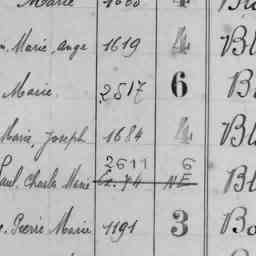 Marie
n. Marie, Ange 1619 4 Bl
Marie. 2517 6 B
Marie, Joseph 1684 4 Bl
2611 6
Paul, Charles Marie NE Bl
e. Pierre Marie 1191 3 Bo